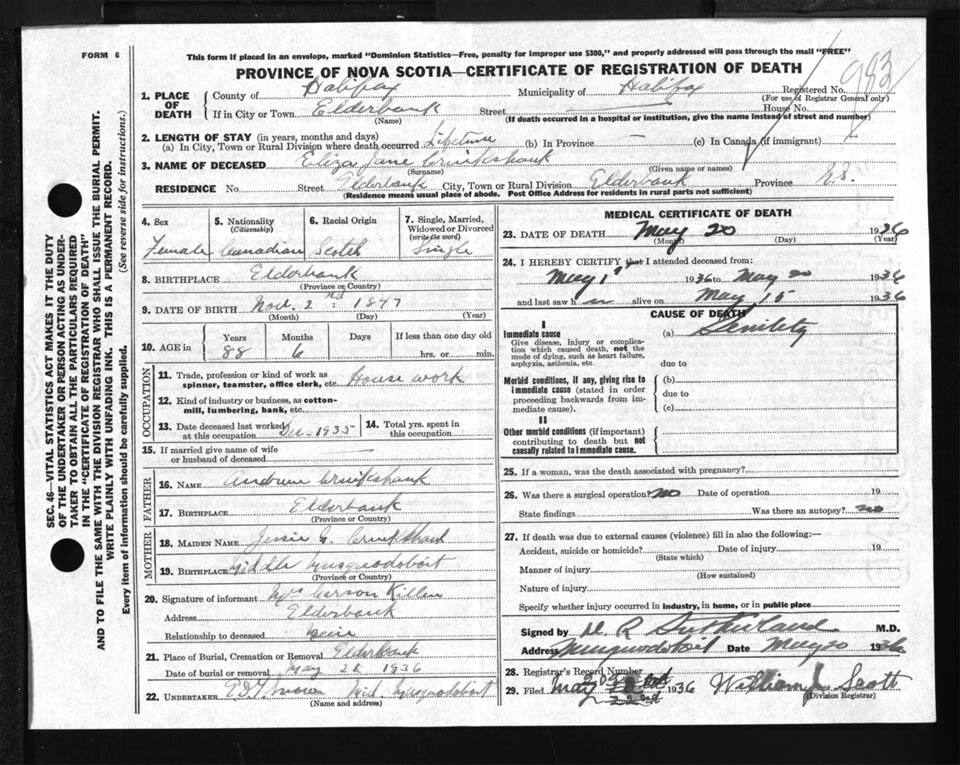 FORM 6
This form if placed in an envelope, marked "Dominion Statistics—Free, penalty for improper use $300," and properly addressed will pass through the mail "FREE"
PROVINCE OF NOVA SCOTIA—CERTIFICATE OF REGISTRATION OF DEATH
983
1. PLACE OF DEATH
County of Halifax Municipality of Halifax Registered No.
(For use of Registrar General only)
If in City or Town Elderbank Street House No.
(Name) (If death occurred in a hospital or institution, give the name instead of street and number)
2. LENGTH OF STAY (in years, months and days)
(a) In City, Town or Rural Division where death occurred Lifetime (b) In Province — (c) In Canada (if immigrant)
3. NAME OF DECEASED Eliza Jane Cruikshank
(Surname) (Given name or names)
RESIDENCE No. Street Elderbank City, Town or Rural Division Elderbank Province N.S.
(Residence means usual place of abode. Post Office Address for residents in rural parts not sufficient)
SEC. 46—VITAL STATISTICS ACT MAKES IT THE DUTY
OF THE UNDERTAKER OR PERSON ACTING AS UNDER-
TAKER TO OBTAIN ALL THE PARTICULARS REQUIRED
IN THE "CERTIFICATE OF REGISTRATION OF DEATH"
AND TO FILE THE SAME WITH THE DIVISION REGISTRAR WHO SHALL ISSUE THE BURIAL PERMIT.
WRITE PLAINLY WITH UNFADING INK. THIS IS A PERMANENT RECORD.
Every item of information should be carefully supplied. (See reverse side for instructions.)
4. Sex
Female
5. Nationality
(Citizenship)
Canadian
6. Racial Origin
Scotch
7. Single, Married,
Widowed or Divorced
(write the word)
Single
8. BIRTHPLACE Elderbank
(Province or Country)
9. DATE OF BIRTH Nov. 2nd 1847
(Month) (Day) (Year)
10. AGE in
Years
88
Months
6
Days
If less than one day old
hrs. or min.
OCCUPATION
11. Trade, profession or kind of work as
spinner, teamster, office clerk, etc. House work
12. Kind of industry or business, as cotton-
mill, lumbering, bank, etc.
13. Date deceased last worked
at this occupation Dec. 1935
14. Total yrs. spent in
this occupation
15. If married give name of wife
or husband of deceased —
FATHER
16. NAME Andrew Cruikshank
17. BIRTHPLACE Elderbank
(Province or Country)
MOTHER
18. MAIDEN NAME Jessie G. Cruikshank
19. BIRTHPLACE Middle Musquodoboit
(Province or Country)
20. Signature of informant Mrs Carson Killen
Address Elderbank
Relationship to deceased
21. Place of Burial, Cremation or Removal Elderbank
Date of burial or removal May 21 1936
22. UNDERTAKER Mid. Musquodoboit
(Name and address)
MEDICAL CERTIFICATE OF DEATH
23. DATE OF DEATH May 20 1936
(Month) (Day) (Year)
24. I HEREBY CERTIFY that I attended deceased from:
May 1st 1936 to May 20 1936
and last saw h er alive on May 15 1936
CAUSE OF DEATH
I
Immediate cause
Give disease, injury or complica-
tion which caused death, not the
mode of dying, such as heart failure,
asphyxia, asthenia, etc.
(a) Senility
due to
Morbid conditions, if any, giving rise to
immediate cause (stated in order
proceeding backwards from im-
mediate cause).
(b)
due to
(c)
II
Other morbid conditions (if important)
contributing to death but not
causally related to immediate cause.
25. If a woman, was the death associated with pregnancy?
26. Was there a surgical operation? no Date of operation 19
State findings Was there an autopsy? no
27. If death was due to external causes (violence) fill in also the following:—
Accident, suicide or homicide? Date of injury 19
(State which)
Manner of injury
(How sustained)
Nature of injury
Specify whether injury occurred in industry, in home, or in public place
Signed by R Sutherland M.D.
Address Musquodoboit Date May 20 1936
28. Registrar's Record Number
29. Filed May 1936 William Scott
(Division Registrar)